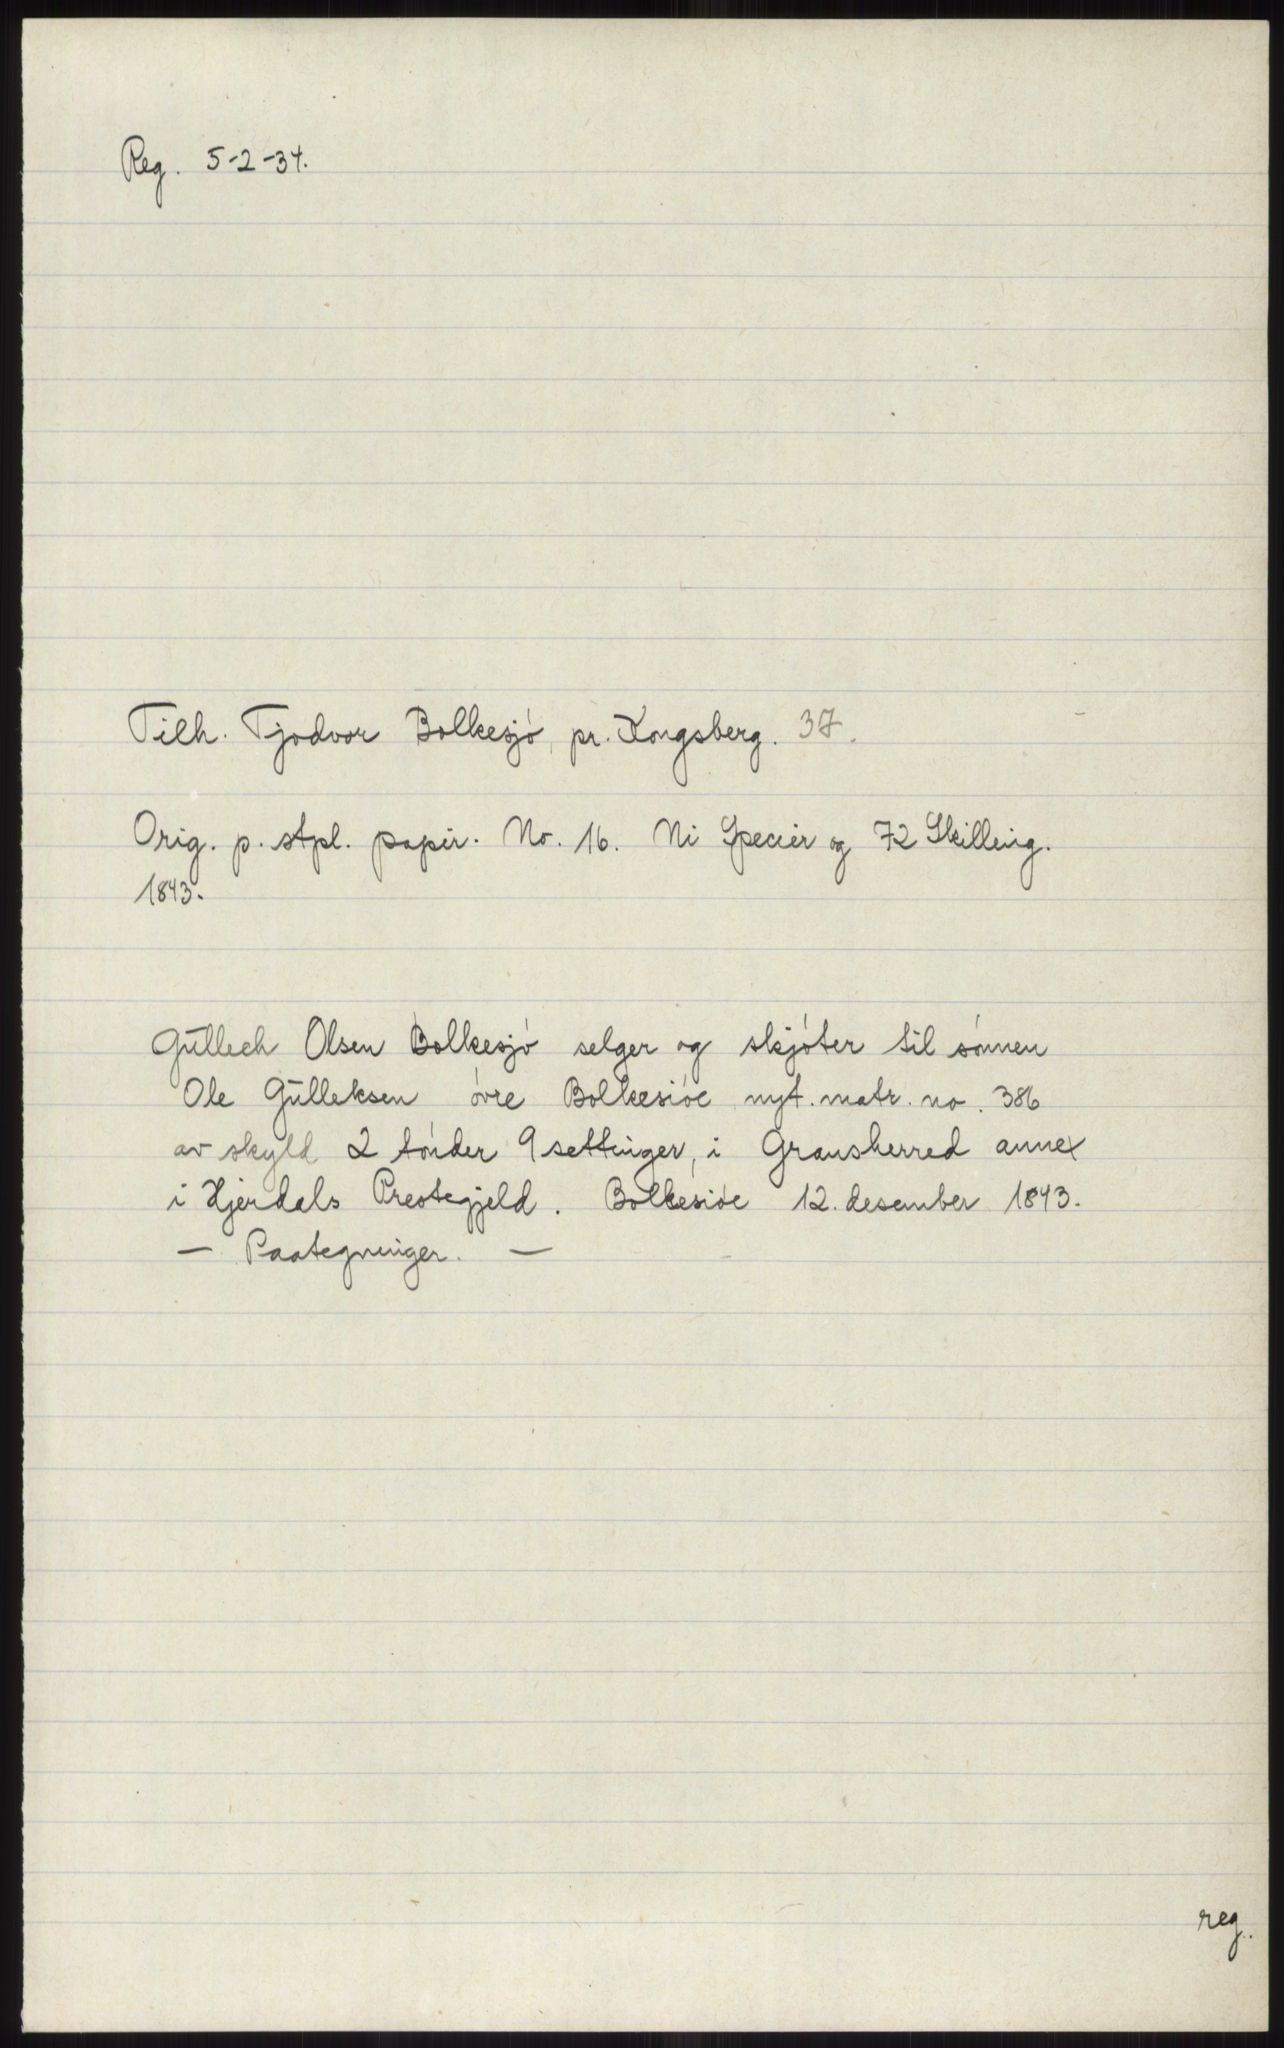 Reg. 5-2-34.
Tilh. Tjodvor Bolkesjó, pr. Kongsberg. 37.
Orig. p. stpl. papir. No. 16. Ni Specier og 72 Skilling.
1843.
Gūllech Olsen Bolkesjó selger og skjóter til sónnen
Ole Gūlleksen óvre Bolkesióe nyt. matr. no. 386
av skyld 2 tónder 9 settinger, i Gransherred annex
i Hjerdals Prestegjeld. Bolkesióe 12. desember 1843.
— Paategninger. —
reg.